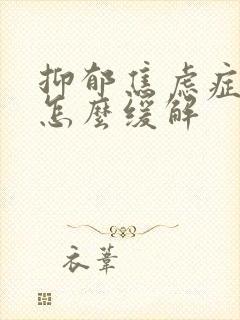 抑郁焦虑症
怎麼缓解
衣葦